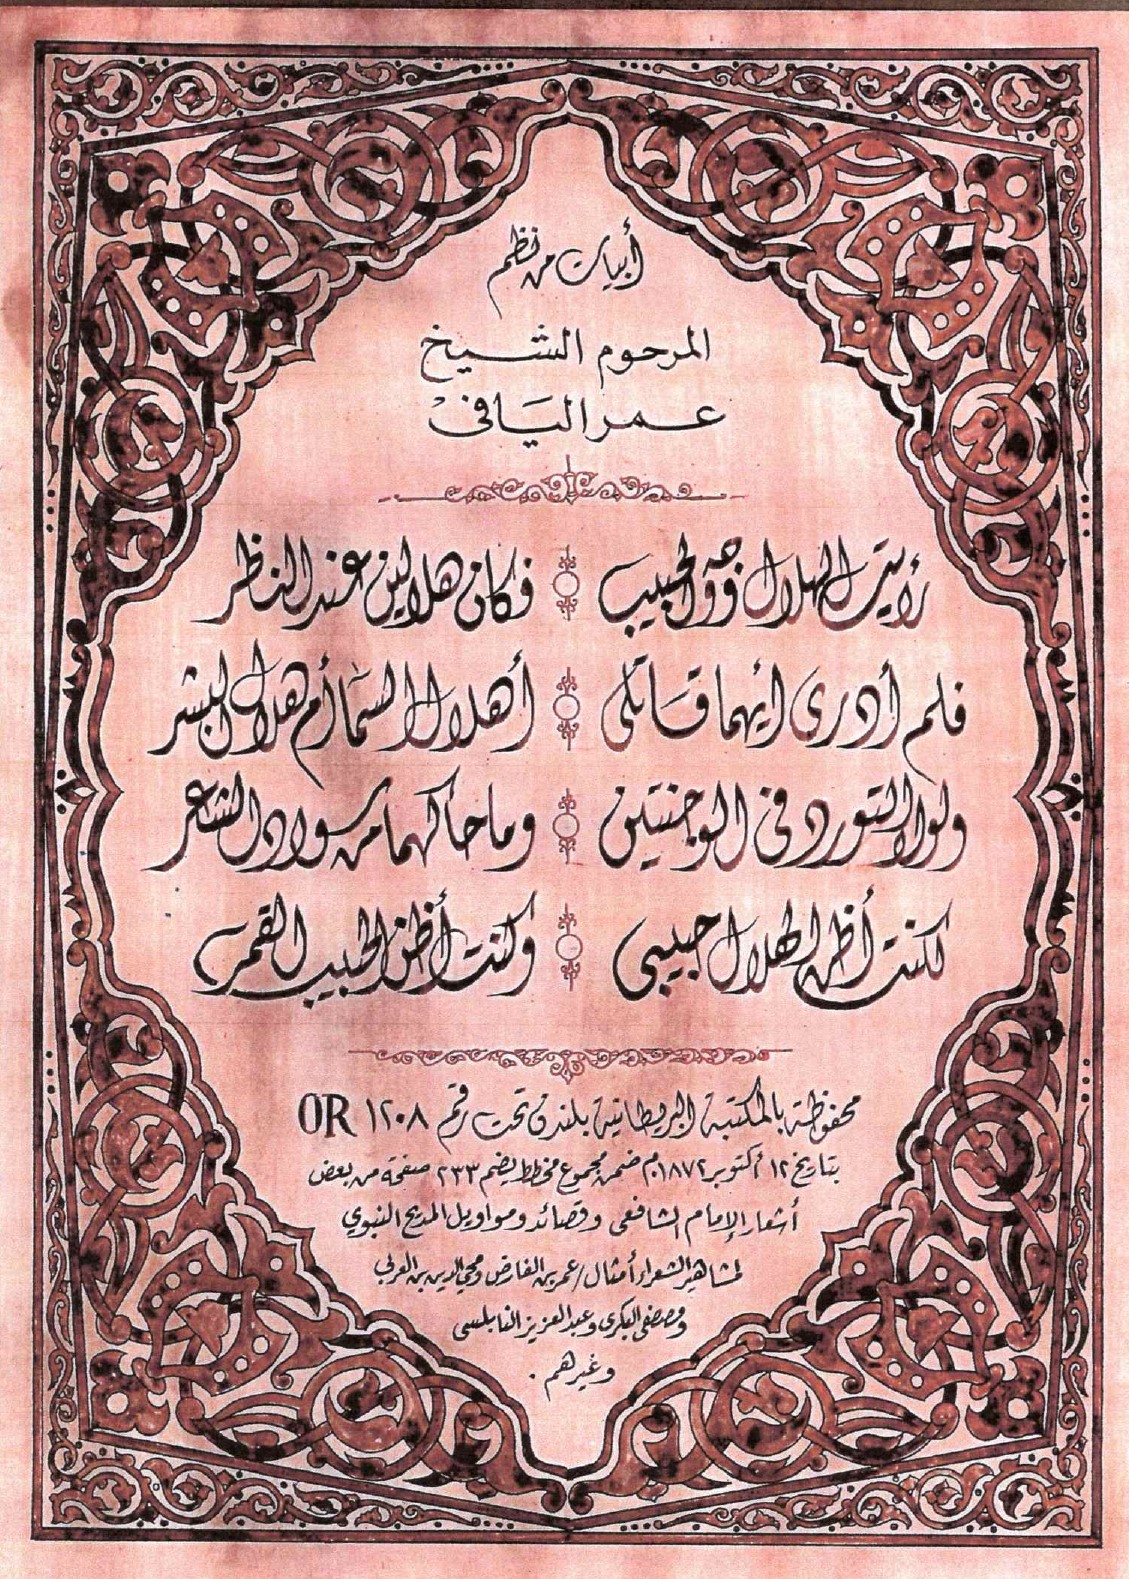 أبيات من نظم
المرحوم الشيخ
عمر اليَافىْ
رأيت الهلال ووجه الحبيب فكان هلالين عند النظر
فلم أدرى أيهما قَاتلى أهلال السمأ أم هلال البشر
ولولا التورد فى الوجنتين وما حاكهما من سواد الشعر
لكنت أظن الهلال حبيبي وكنت أظن الحبيب القمر
محفوظة بالمكتبة البريطانية بلندن تحت رقم OR ١٢٠٨
بتاريخ ١٢ أكتوبر ١٨٧٢م ضمن مجموع مخطط يضم ٢٣٣ صفحة من بعض
أشعار الإمام الشافعى وقصائد ومواويل المديح النبوي
لمشاهير الشعراء أمثال / عمر بن الفارض ومحي الدين بن العربى
ومصطفى البكرى وعبد العزيز النابلسى
وغيرهم .